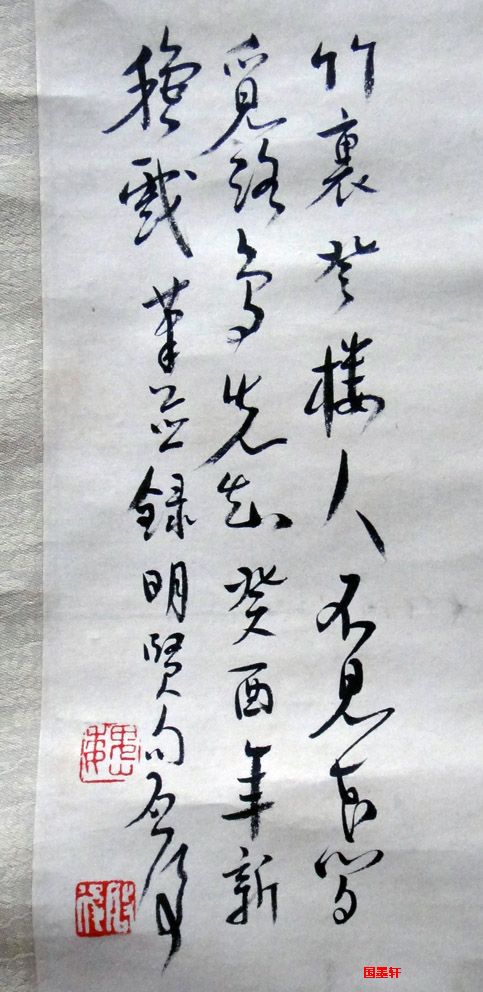 竹裏登樓人不見花間
覓路鳥先知癸酉年新
穐戲筆並録明賢句
国墨轩